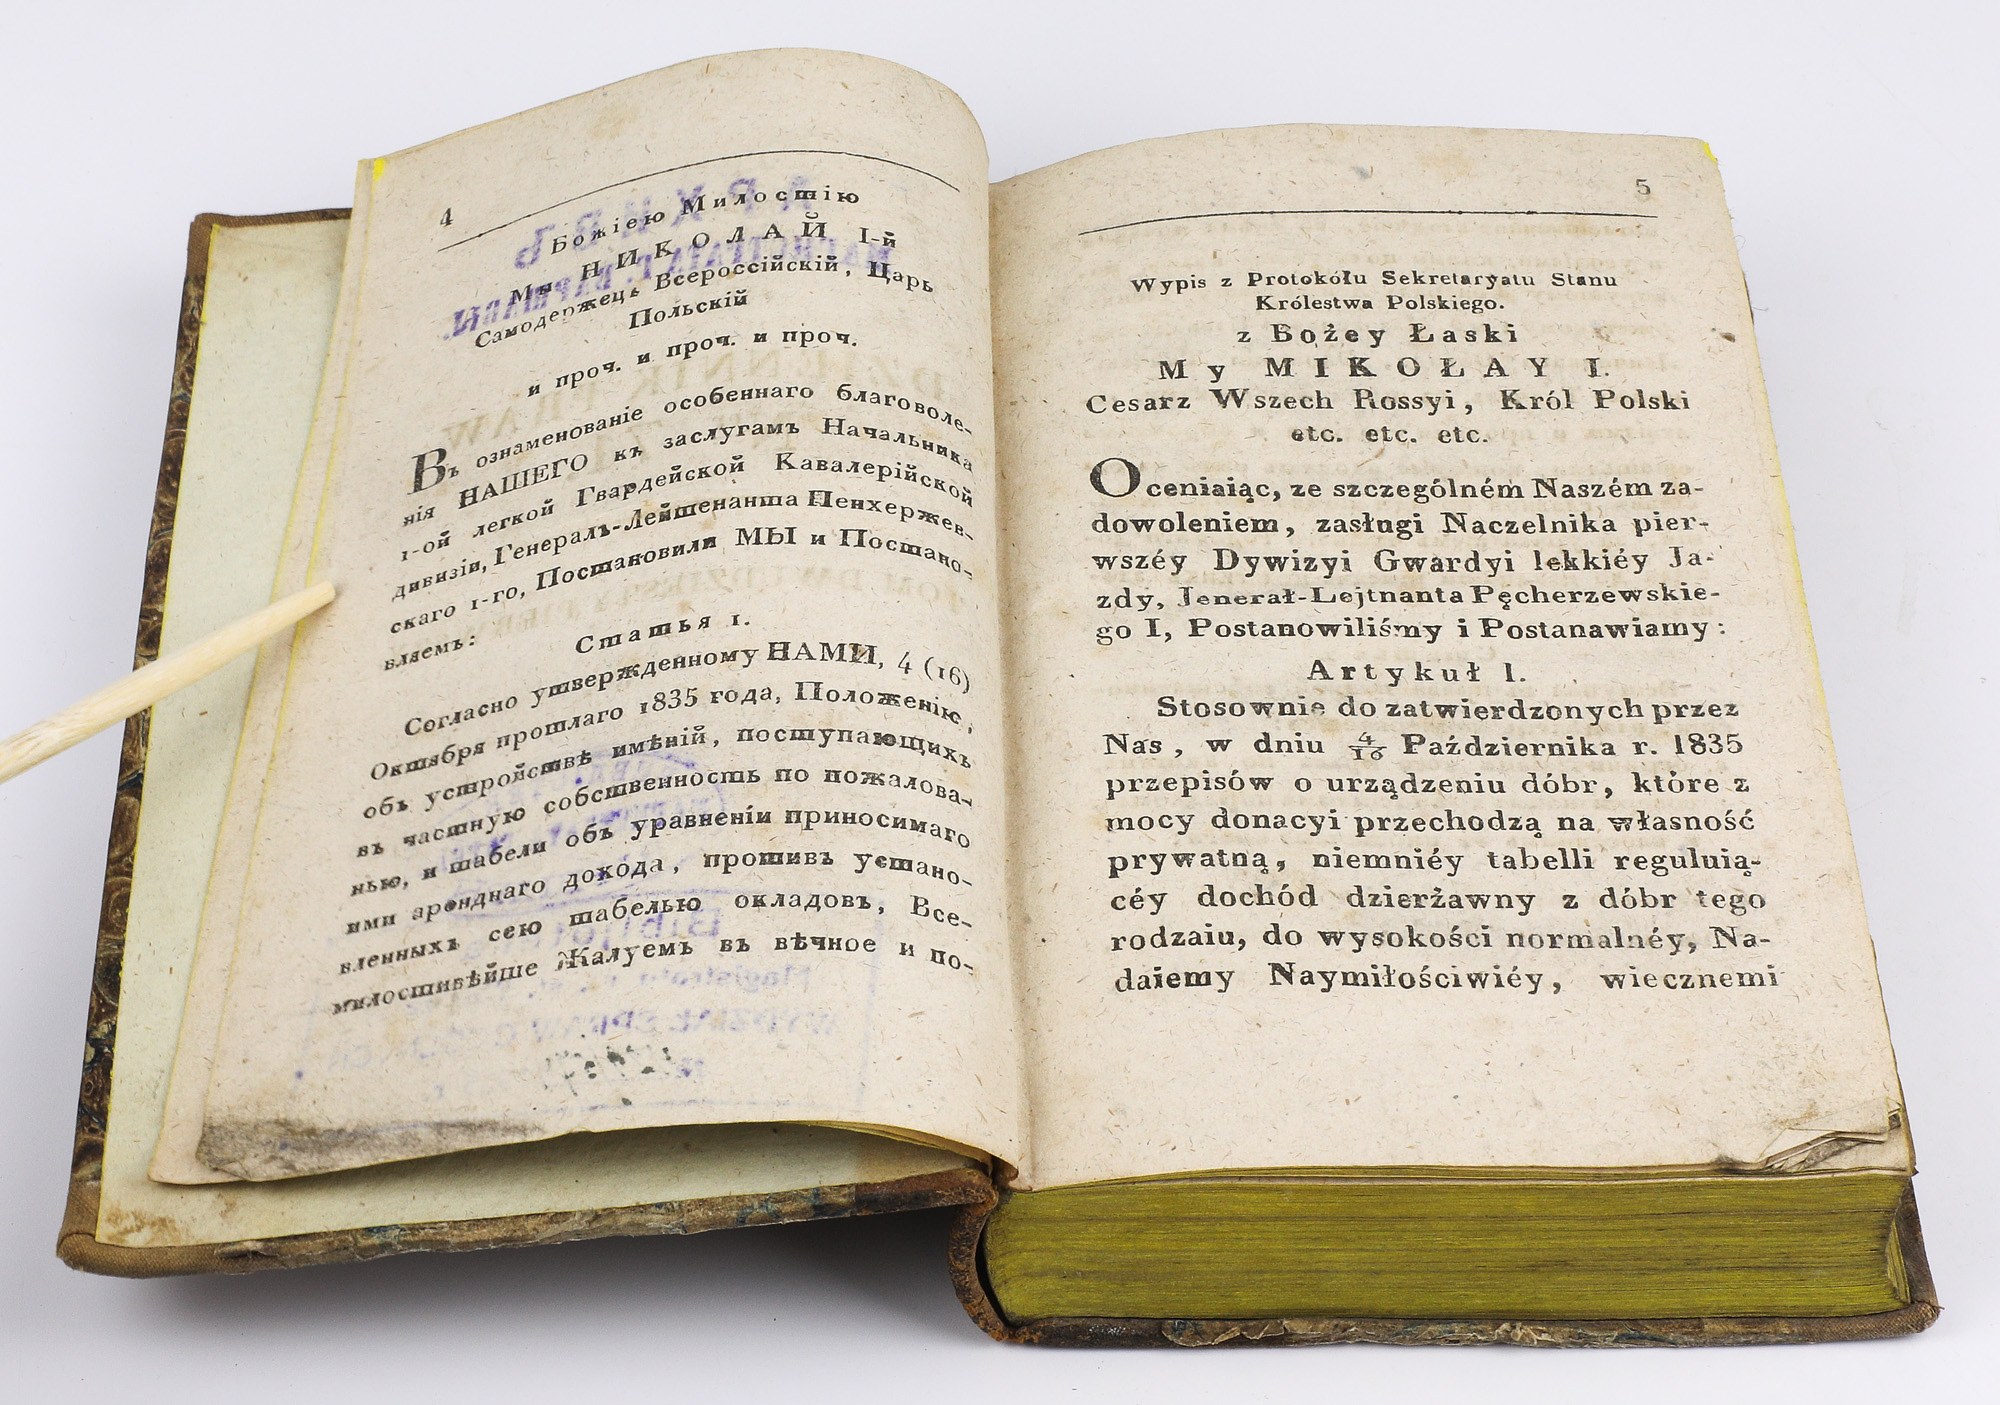 4
Божіею Милостію
Мы НИКОЛАЙ I-й
Самодержецъ Всероссійскій, Царь
Польскій
и проч. и проч. и проч.
Въ ознаменованіе особеннаго благоволе-
нія НАШЕГО къ заслугамъ Начальника
1-ой легкой Гвардейской Кавалерійской
дивизіи, Генералъ-Лейтенанта Пенхержев-
скаго 1-го, Постановили МЫ и Постано-
вляемъ:
Статья 1.
Согласно утвержденному НАМИ, 4 (16)
Октября прошлаго 1835 года, Положенію,
объ устройствѣ имѣній, поступающихъ
въ частную собственность по пожалова-
нью, и табели объ уравненіи приносимаго
ими аренднаго дохода, противъ устано-
вленныхъ сею табелью окладовъ, Все-
милостивѣйше Жалуемъ въ вѣчное и по-
5
Wypis z Protokółu Sekretaryatu Stanu
Królestwa Polskiego.
z Bożey Łaski
My MIKOŁAY I.
Cesarz Wszech Rossyi, Król Polski
etc. etc. etc.
Oceniaiąc, ze szczególném Naszém za-
dowoleniem, zasługi Naczelnika pier-
wszéy Dywizyi Gwardyi lekkiéy Ja-
zdy, Jenerał-Lejtnanta Pęcherzewskie-
go I, Postanowiliśmy i Postanawiamy:
Artykuł I.
Stosownie do zatwierdzonych przez
Nas, w dniu 4/16 Października r. 1835
przepisów o urządzeniu dóbr, które z
mocy donacyi przechodzą na własność
prywatną, niemniéy tabelli reguluią-
céy dochód dzierżawny z dóbr tego
rodzaiu, do wysokości normalnéy, Na-
daiemy Naymiłościwiéy, wiecznemi